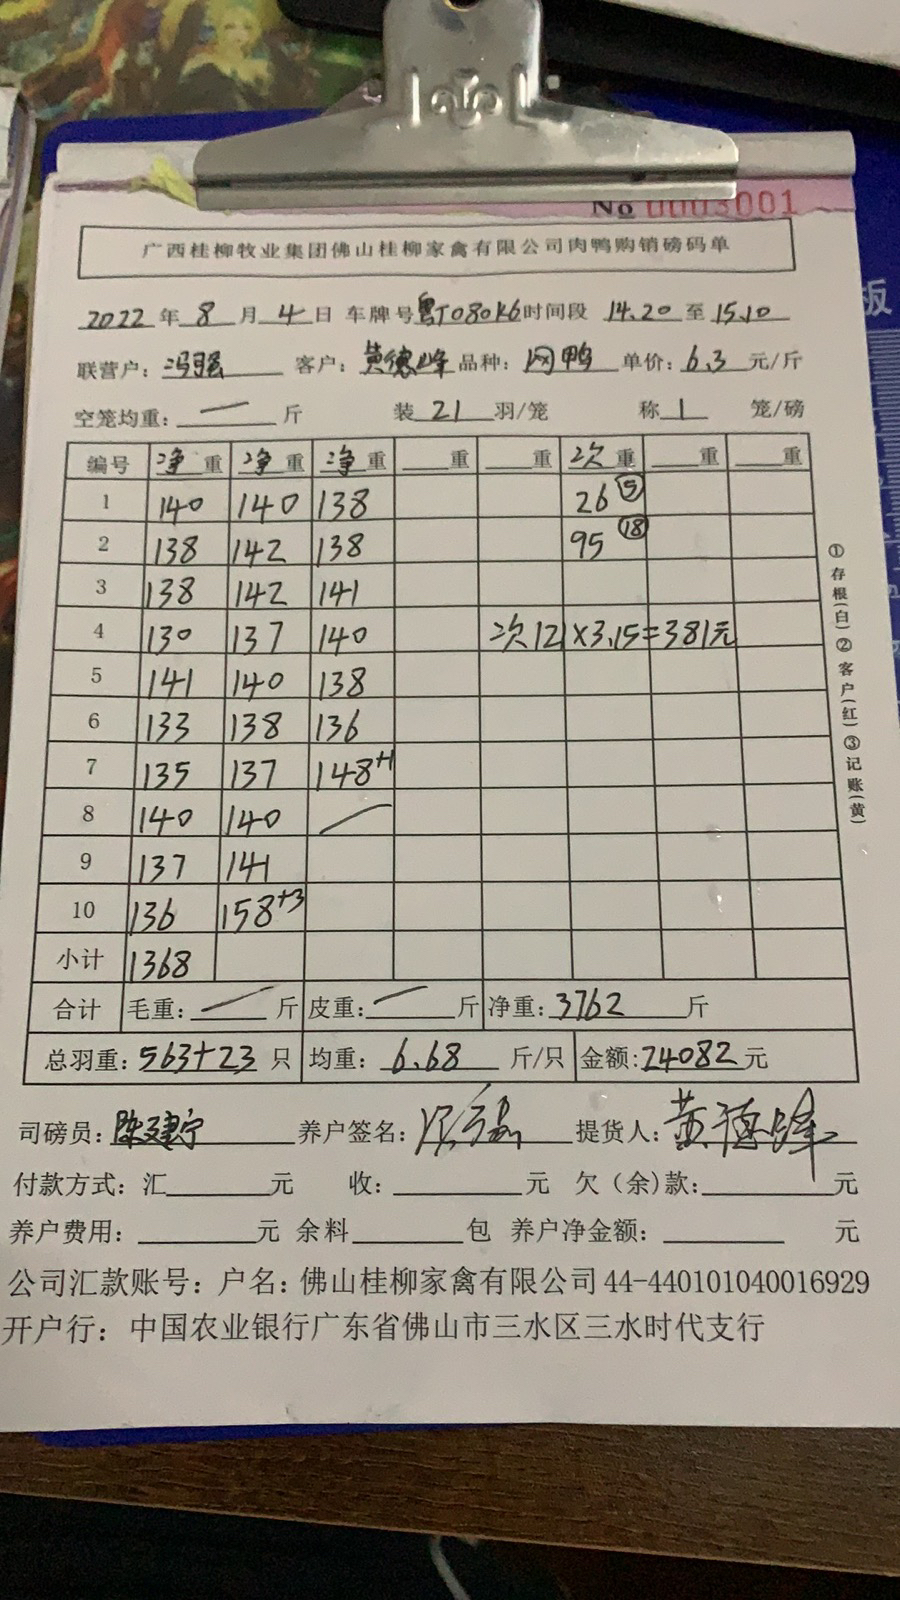 No 0003001
广西桂柳牧业集团佛山桂柳家禽有限公司肉鸭购销磅码单
2022 年 8 月 4 日 车牌号 粤J080K6 时间段 14.20 至 15.10
联营户: 冯强 客户: 黄德峰 品种: 网鸭 单价: 6.3 元/斤
空笼均重: — 斤 装 21 羽/笼 称 1 笼/磅
编号 净 重 净 重 净 重 ___重 ___重 次 重 ___重 ___重
1 140 140 138 26 ⑤
2 138 142 138 95 ⑱
3 138 142 141
4 130 137 140 次121×3.15=381元
5 141 140 138
6 133 138 136
7 135 137 148+1
8 140 140 —
9 137 141
10 136 158+3
小计 1368
合计 毛重: — 斤 皮重: — 斤 净重: 3762 斤
总羽重: 563+23 只 均重: 6.68 斤/只 金额: 24082 元
司磅员: 陈建宁 养户签名: 冯强 提货人: 黄德峰
付款方式: 汇______元 收: ______元 欠(余)款:______元
养户费用: ______元 余料______包 养户净金额: ______ 元
公司汇款账号: 户名: 佛山桂柳家禽有限公司 44-440101040016929
开户行: 中国农业银行广东省佛山市三水区三水时代支行
①存根(白)②客户(红)③记账(黄)
板